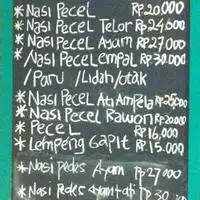 * Nasi Pecel Rp 20.000
* Nasi Pecel Telor Rp 24.000
* Nasi Pecel Ayam Rp 27.000
* Nasi Pecel empal Rp 30.000
/Paru /Lidah/otak
* Nasi Pecel Ati Ampela Rp 25000
* Nasi Pecel Rawon Rp 20.000
* Pecel Rp 16,000
* Lempeng Gapit Rp 15.000
* Nasi Pedes Ayam Rp 27000
* Nasi Pedes Ayam+ati Rp 30